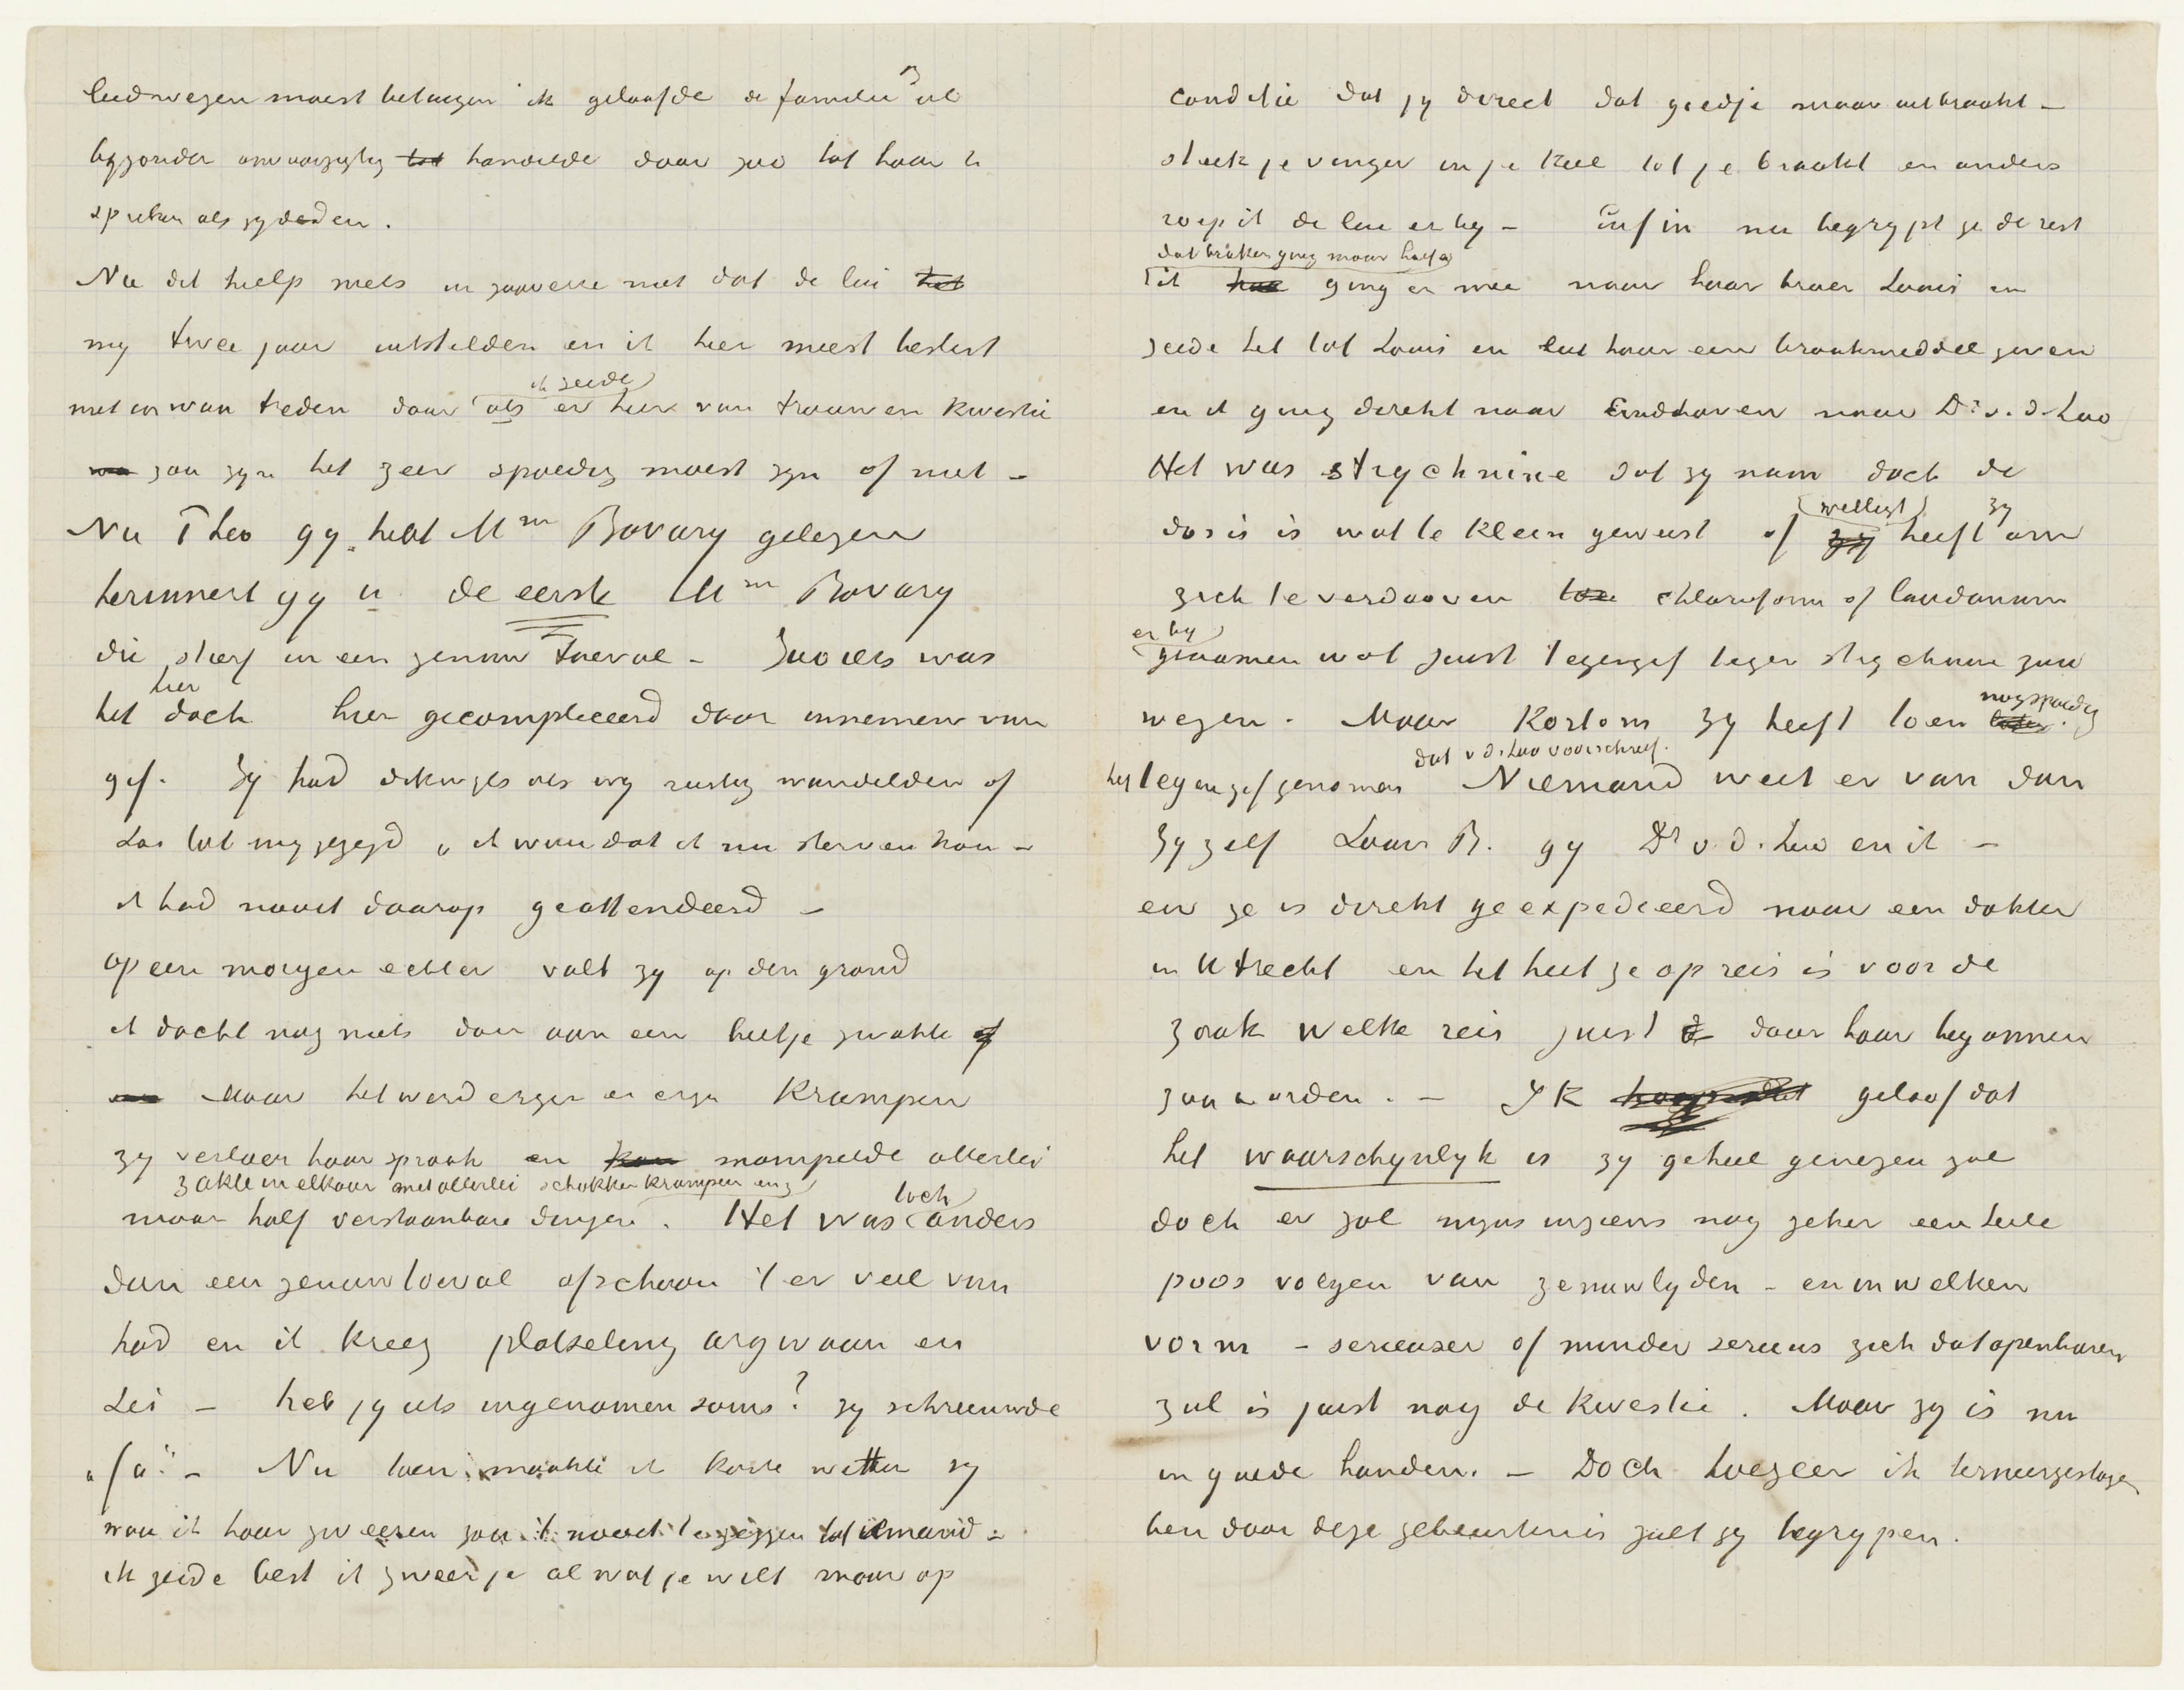 leedwezen moest betuigen ik geloofde de familie al
zij
byzonder onvoorzigtig tot handelde door zoo tot haar te
spreken als zy deden.
Nu dit hielp niets in zooverre niet dat de lui het
my twee jaar uitstelden en ik hier meest beslist
ik zeide
niet in wou treden daar als er hier van trouwen kwestie
wa zou zyn het zeer spoedig moest zyn of niet –
Nu Theo gy hebt Mme Bovary gelezen
herinnert gy U de eerste Mme Bovary
die stierf in een zenuw toeval – Zoo iets was
hier
het doch hier gecompliceerd door innemen van
gif. Zy had dikwyls als wy rustig wandelden of
zoo tot my gezegd „ik wou dat ik nu sterven kon –
ik had nooit daarop geattendeerd –
op een morgen echter valt zy op den grond
ik dacht nog niets dan aan een beetje zwakte of
Maar het werd erger en erger Krampen
zy verloor haar spraak en kon mompelde allerlei
zakte in elkaar met allerlei schokken krampen enz
maar half verstaanbare dingen. Het was anders
toch
dan een zenuwtoeval ofschoon 't er veel van
had en ik kreeg plotseling argwaan en
zei – heb jy iets ingenomen soms? zy schreeuwde
„Ja". – Nu toen maakte ik korte wetten zy
wou ik haar zweeren zou 't nooit te zeggen tot iemand –
ik zeide best ik zweer je al wat je wilt maar op
conditie dat jy direct dat goedje maar uitbraakt –
steek je vinger in je keel tot je braakt en anders
roep ik de lui er by – enfin nu begrypt ge de rest
dat braken ging maar half &
ik ging er mee naar haar broer Louis en
zeide het tot Louis en liet haar een braakmiddel geven
en ik ging direkt naar Eindhoven naar Dr v. d. Loo
Het was strychnine dat zy nam doch de
dosis is wat te klein geweest of zy heeft om
welligt zy
zich te verdooven chloroform of laudanum
er by
genomen wat juist tegengif tegen strychnine zou
wezen. Maar Kortom zy heeft toen
nog spoedig
dat v. d. Loo voorschreef.
het tegengif genomen Niemand weet er van dan
Zy zelf Louis B. gy Dr v. d. Loo en ik –
en ze is direkt geexpedieerd naar een dokter
in Utrecht en het heet ze op reis is voor de
zaak welke reis juist door haar begonnen
zou worden. – Ik geloof dat
het waarschynlyk is zy geheel genezen zal
doch er zal myns inziens nog zeker een heele
poos volgen van zenuwlyden – en in welken
vorm – serieuser of minder serieus zich dat openbaren
zal is juist nog de kwestie. Maar zy is nu
in goede handen. – Doch hoezeer ik terneergeslagen
ben door deze gebeurtenis zult gy begrypen.